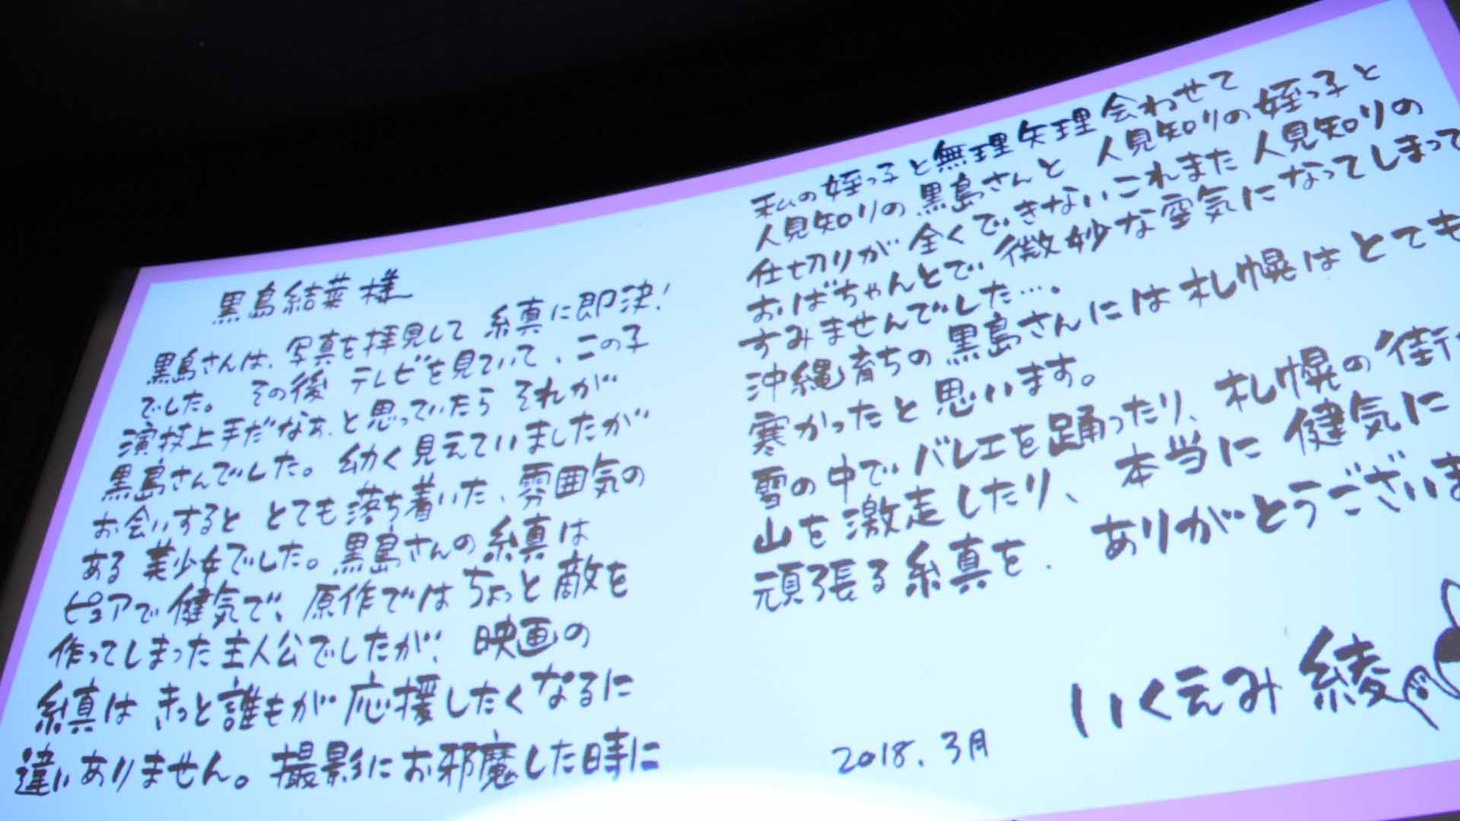 黒島結菜様
黒島さんは、写真を拝見して 糸真に即決!
でした。 その後 テレビを見ていて、この子
演技上手だなぁ、と思っていたら それが
黒島さんでした。 幼く見えていましたが
お会いすると とても落ち着いた、雰囲気の
ある 美少女でした。黒島さんの糸真は
ピュアで健気で、原作ではちょっと敵を
作ってしまった主人公でしたが、映画の
糸真は きっと誰もが 応援したくなるに
違いありません。撮影にお邪魔した時に
私の姪っ子と無理矢理会わせて
人見知りの黒島さんと 人見知りの姪っ子と
仕切りが全くできないこれまた人見知りの
おばちゃんとで、微妙な空気になってしまって
すみませんでした…。
沖縄育ちの黒島さんには札幌はとても
寒かったと思います。
雪の中でバレエを踊ったり、札幌の街や
山を激走したり、本当に健気に
頑張る糸真を、ありがとうございま
いくえみ綾
2018.3月